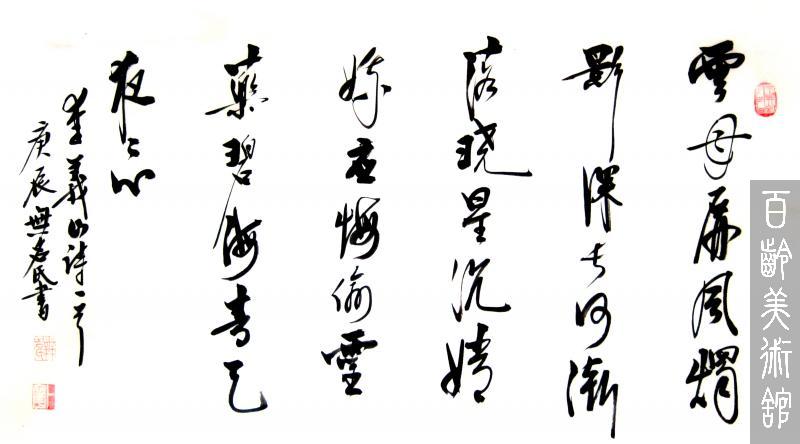 雲母屏風燭
影深長河漸
落曉星沉嫦
娥應悔偷靈
藥碧海青天
夜〻心
李義山詩一首
庚辰無名氏書
百齡美術舘